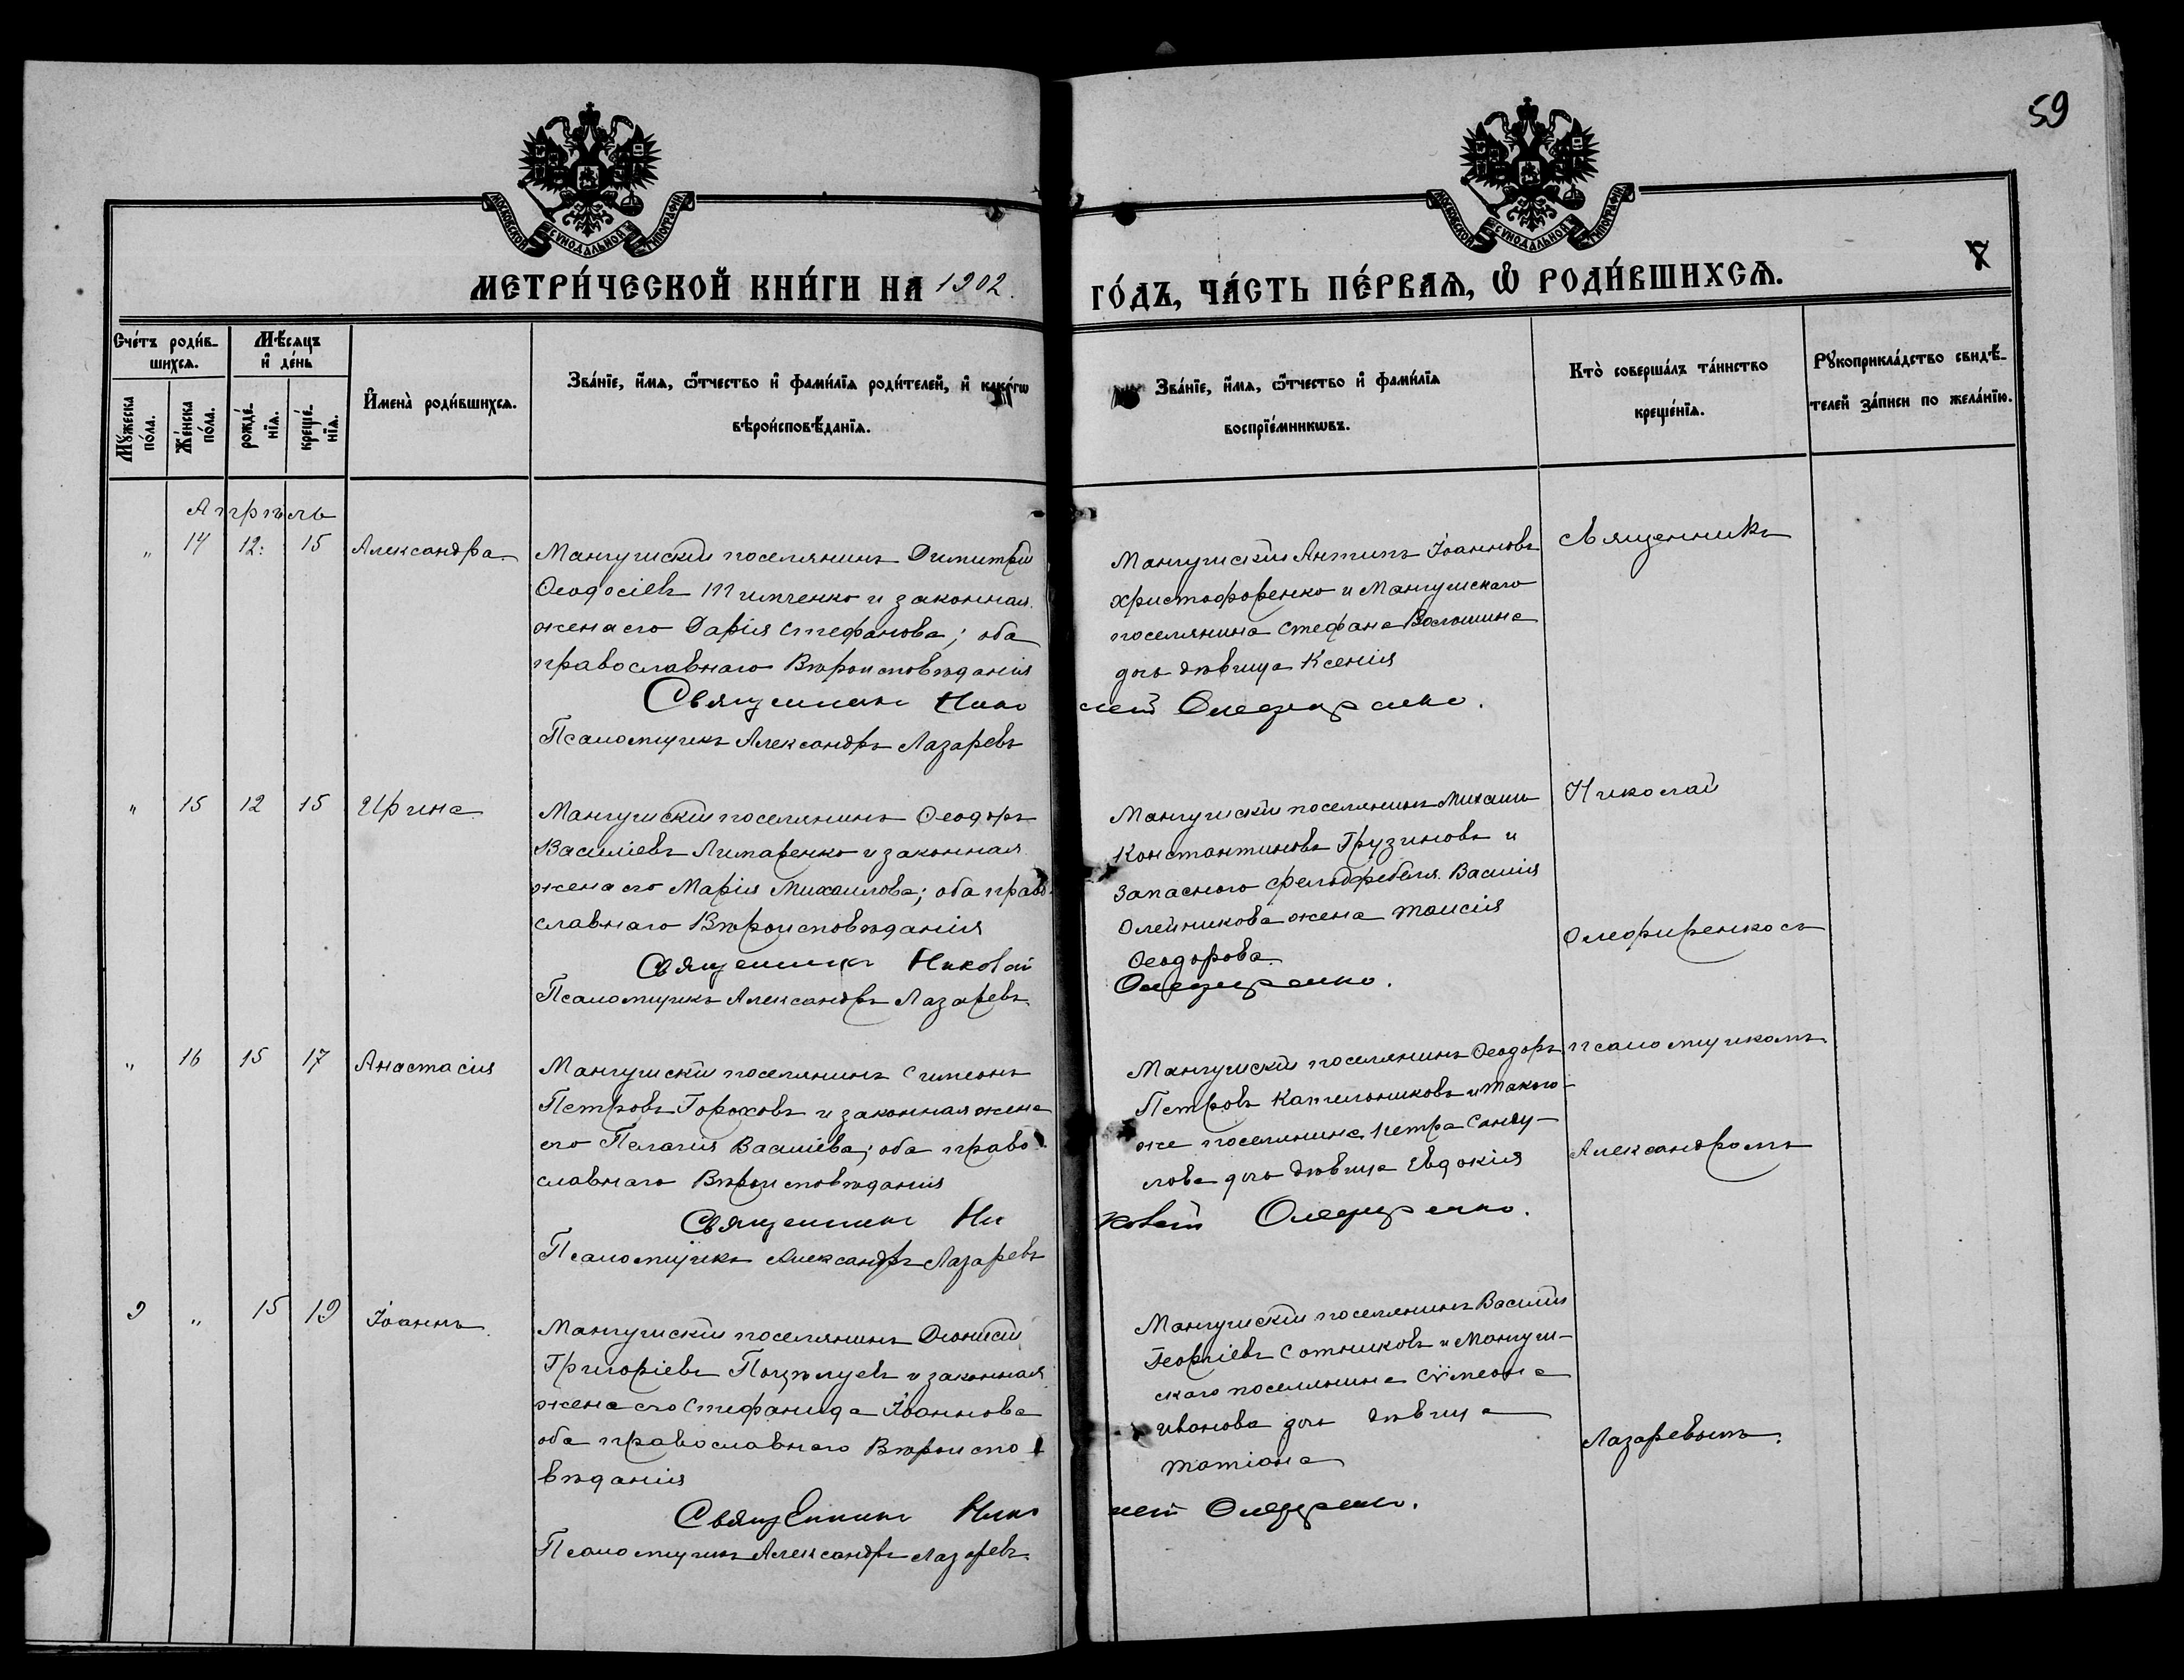 59
МОСКОВСКОЙ СѴНОДАЛЬНОЙ ТИПОГРАФІИ
МОСКОВСКОЙ СѴНОДАЛЬНОЙ ТИПОГРАФІИ
МЕТРИ́ЧЕСКОЙ КНИ́ГИ НА 1902.
ГО́ДЪ, ЧА́СТЬ ПЕ́РВАѦ, Ѡ҆ РОДИ́ВШИХСѦ.
Сче́тъ роди́в-
шихсѧ.
Мꙋ́жеска по́ла.
Же́нска по́ла.
Мѣ́сѧцъ
и҆ де́нь
рожде́-нїѧ.
креще́-нїѧ.
И҆мена̀ роди́вшихсѧ.
Зва́нїе, и҆́мѧ, ѻ҆́тчество и҆ фами́лїѧ роди́телей, и҆ како́гѡ
вѣроисповѣ́данїѧ.
Зва́нїе, и҆́мѧ, ѻ҆́тчество и҆ фами́лїѧ
воспрїе́мникѡвъ.
Кто̀ соверша́лъ та́инство
креще́нїѧ.
Рꙋкоприкла́дство свидѣ́-
телей за́писи по жела́нїю.
Апрѣль
" 14 12. 15 Александра
Мангушскій поселянинъ Димитрій
Ѳеодосіевъ Тимченко и законная
жена его Дарія Стефанова; оба
православнаго Вѣроисповѣданія
Священникъ Нико
Псаломщикъ Александръ Лазаревъ
Мангушскій Антипъ Іоанновъ
Христофоренко и Мангушскаго
поселянина Стефана Волошина
дочь дѣвица Ксенія
лай Олефиренко.
Священникъ
" 15 12 15 Ирина
Мангушскій поселянинъ Ѳеодоръ
Василіевъ Лимаренко и законная
жена его Марія Михаилова; оба право-
славнаго Вѣроисповѣданія
Священникъ Николай
Псаломщикъ Александръ Лазаревъ
Мангушскій поселянинъ Михаилъ
Константиновъ Грузиновъ и
Запаснаго фельдфебеля Василія
Олейникова жена Таисія
Ѳеодорова
Олефиренко.
Николай
Олефиренко съ
" 16 15 17 Анастасія
Мангушскій поселянинъ Симеонъ
Петровъ Гороховъ и законная жена
его Пелагія Василіева; оба право
славнаго Вѣроисповѣданія
Священникъ Ни
Псаломщикъ Александръ Лазаревъ
Мангушскій поселянинъ Ѳеодоръ
Петровъ Капельниковъ и такого-
же поселянина Петра
дочь дѣвица Евдокія
колай Олефиренко.
псаломщикомъ
Александромъ
9 " 15 19 Іоаннъ
Мангушскій поселянинъ Діонисій
Григоріевъ Поцѣлуевъ и законная
жена его Стефанида Іоаннова
оба православнаго Вѣроиспо
вѣданія
Священникъ Нико
Псаломщикъ Александръ Лазаревъ.
Мангушскій поселянинъ Василій
Георгіевъ Сотниковъ и Мангуш-
скаго поселянина Сѵмеона
Иванова дочь дѣвица
Татіана
лай Олефиренко.
Лазаревымъ.